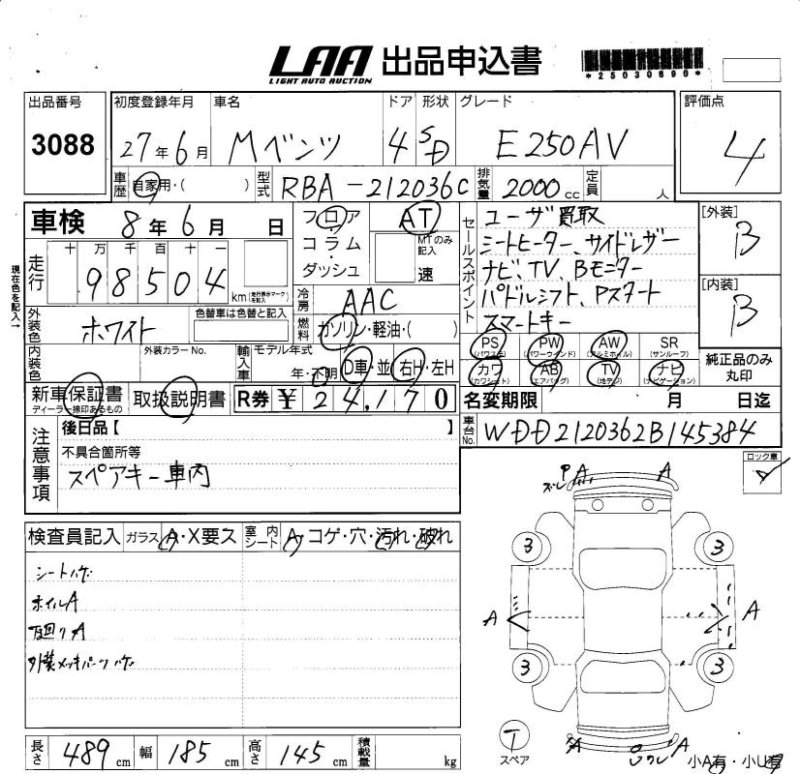 LAA 出品申込書
LIGHT AUTO AUCTION
*25030890*
出品番号 初度登録年月 車名 ドア 形状 グレード 評価点
3088 27年6月 Mベンツ 4 SD E250AV 4
車歴 自家用・( ) 型式 RBA-212036C 排気量 2000cc 定員 人
車検 8年6月 日
フロア AT
コラム・ MTのみ記入
ダッシュ 速
セールスポイント
ユーザ買取
シートヒーター、サイドレザー
ナビ、TV、Bモニター
パドルシフト、Pスタート
スマートキー
[外装] B
[内装] B
走行 十 万 千 百 十 一
98504 km (走行表示マークを記入)
現在色を記入→
冷房 AAC
外装色 ホワイト 色替車は色替と記入
燃料 ガソリン・軽油・( )
内装色 外装カラーNo. 輸入車 モデル年式
年・不明 D車・並 右H・左H
PS (パワステ) PW (パワーウインド) AW (アルミホイル) SR (サンルーフ)
カワ (カワシート) AB (エアバッグ) TV (地デジ) ナビ (ナビゲーション)
純正品のみ丸印
新車保証書 ディーラー捺印あるもの 取扱説明書 R券 ¥24,170
名変期限 月 日迄
車台No. WDD2120362B145384
注意事項
後日品【 】
不具合箇所等
スペアキー車内
ロック車
検査員記入 ガラス A・X要ス 室内シート A・コゲ・穴・汚れ・破れ
シートハゲ
ホイルA
下回りA
外装メッキパーツハゲ
P ズレ A A
3 3
A A
3 3
T
スペア
A A
小A有・小U有
長さ 489cm 幅 185cm 高さ 145cm 積載量 kg